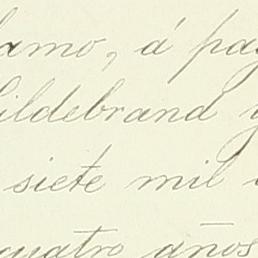 lamo, á pag
ildebrand y
siete mil
cuatro años